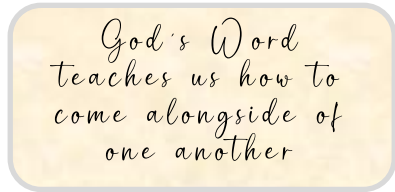 God's Word
teaches us how to
come alongside of
one another